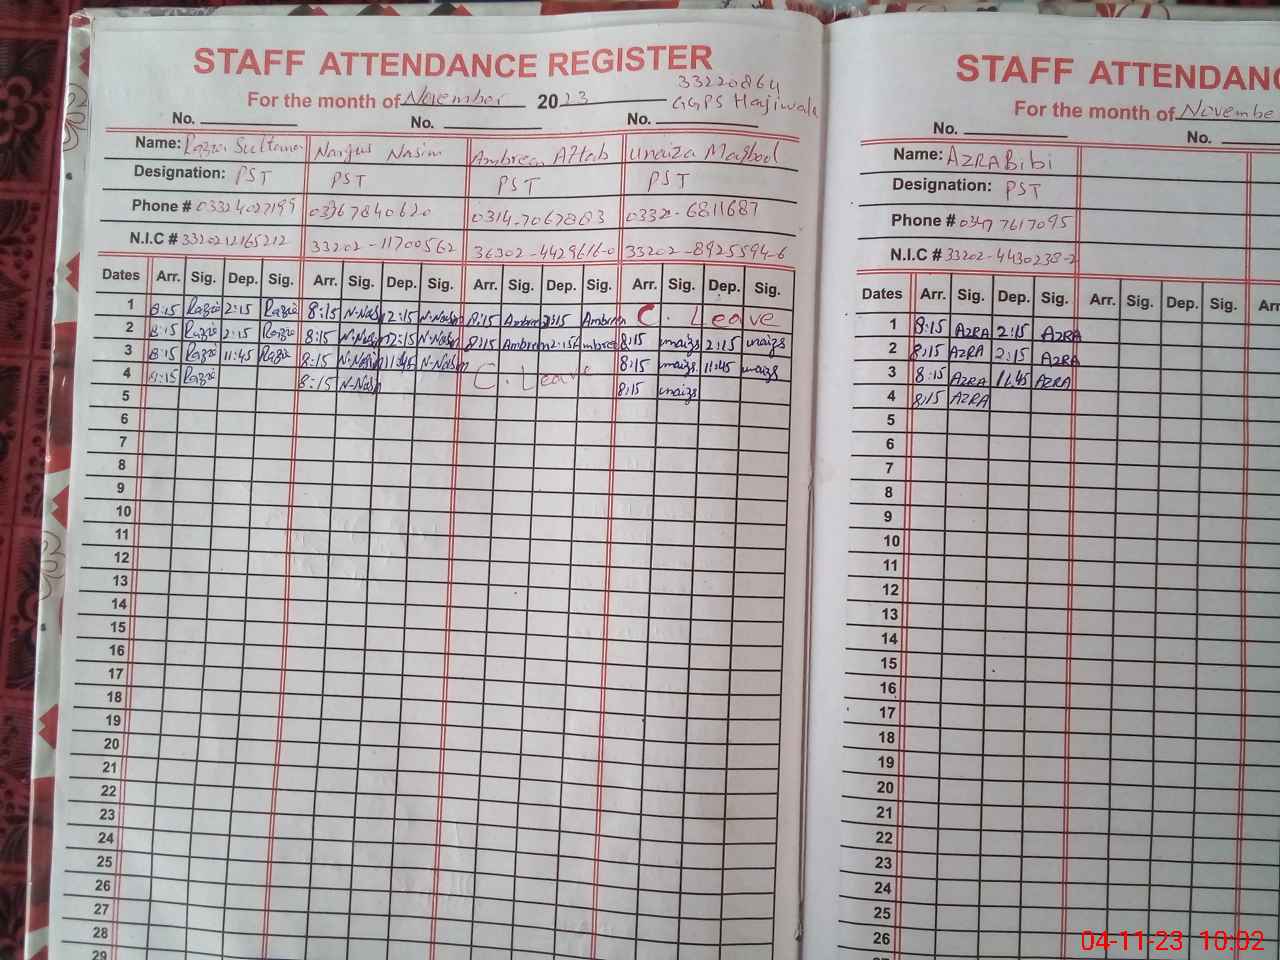 STAFF ATTENDANCE REGISTER
33220864
For the month of November 2023 GGPS Hajiwala
No. No. No.
Name: Razia Sultana Nargus Nasim Ambreen Aftab Unaiza Maqbool
Designation: PST PST PST PST
Phone # 03324027199 03367840620 0314-7067883 0332-6811687
N.I.C # 3320212165212 33202-11700562 36302-4429616-0 33202-8925594-6
Dates Arr. Sig. Dep. Sig. Arr. Sig. Dep. Sig. Arr. Sig. Dep. Sig. Arr. Sig. Dep. Sig.
1 8:15 Razia 2:15 Razia 8:15 N-Nasim 2:15 N-Nasim 8:15 Ambreen 2:15 Ambreen C. Leave
2 8:15 Razia 2:15 Razia 8:15 N-Nasim 2:15 N-Nasim 8:15 Ambreen 2:15 Ambreen 8:15 unaiza 2:15 unaiza
3 8:15 Razia 11:45 Razia 8:15 N-Nasim 11:45 N-Nasim C. Leave 8:15 unaiza 11:45 unaiza
4 8:15 Razia 8:15 N-Nasim 8:15 unaiza
5
6
7
8
9
10
11
12
13
14
15
16
17
18
19
20
21
22
23
24
25
26
27
28
29
STAFF ATTENDANC
For the month of November
No. No.
Name: AZRA Bibi
Designation: PST
Phone # 0347 7617095
N.I.C # 33202-4430238-2
Dates Arr. Sig. Dep. Sig. Arr. Sig. Dep. Sig. Arr
1 8:15 AZRA 2:15 AZRA
2 8:15 AZRA 2:15 AZRA
3 8:15 AZRA 11:45 AZRA
4 8:15 AZRA
5
6
7
8
9
10
11
12
13
14
15
16
17
18
19
20
21
22
23
24
25
26
04-11-23 10:02